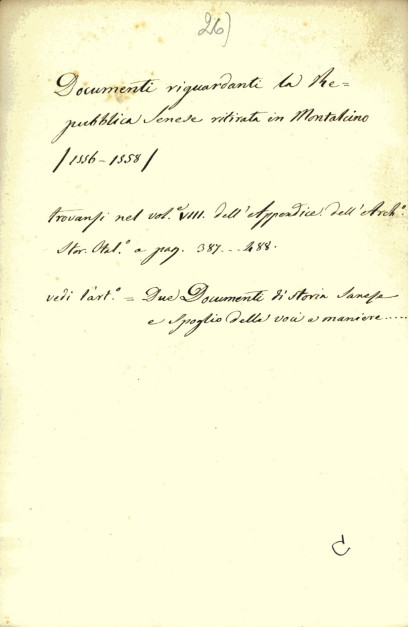 26)
Documenti riguardanti la Re=
pubblica Senese ritirata in Montalcino
/1556-1558/
trovansi nel vol.º VIII. dell'Appendice dell'Arch.º
Stor. Ital.º a pag. 387...488.
vedi l'art.º = Due Documenti di Storia Sanese
e Spoglio delle voci e maniere.....
C